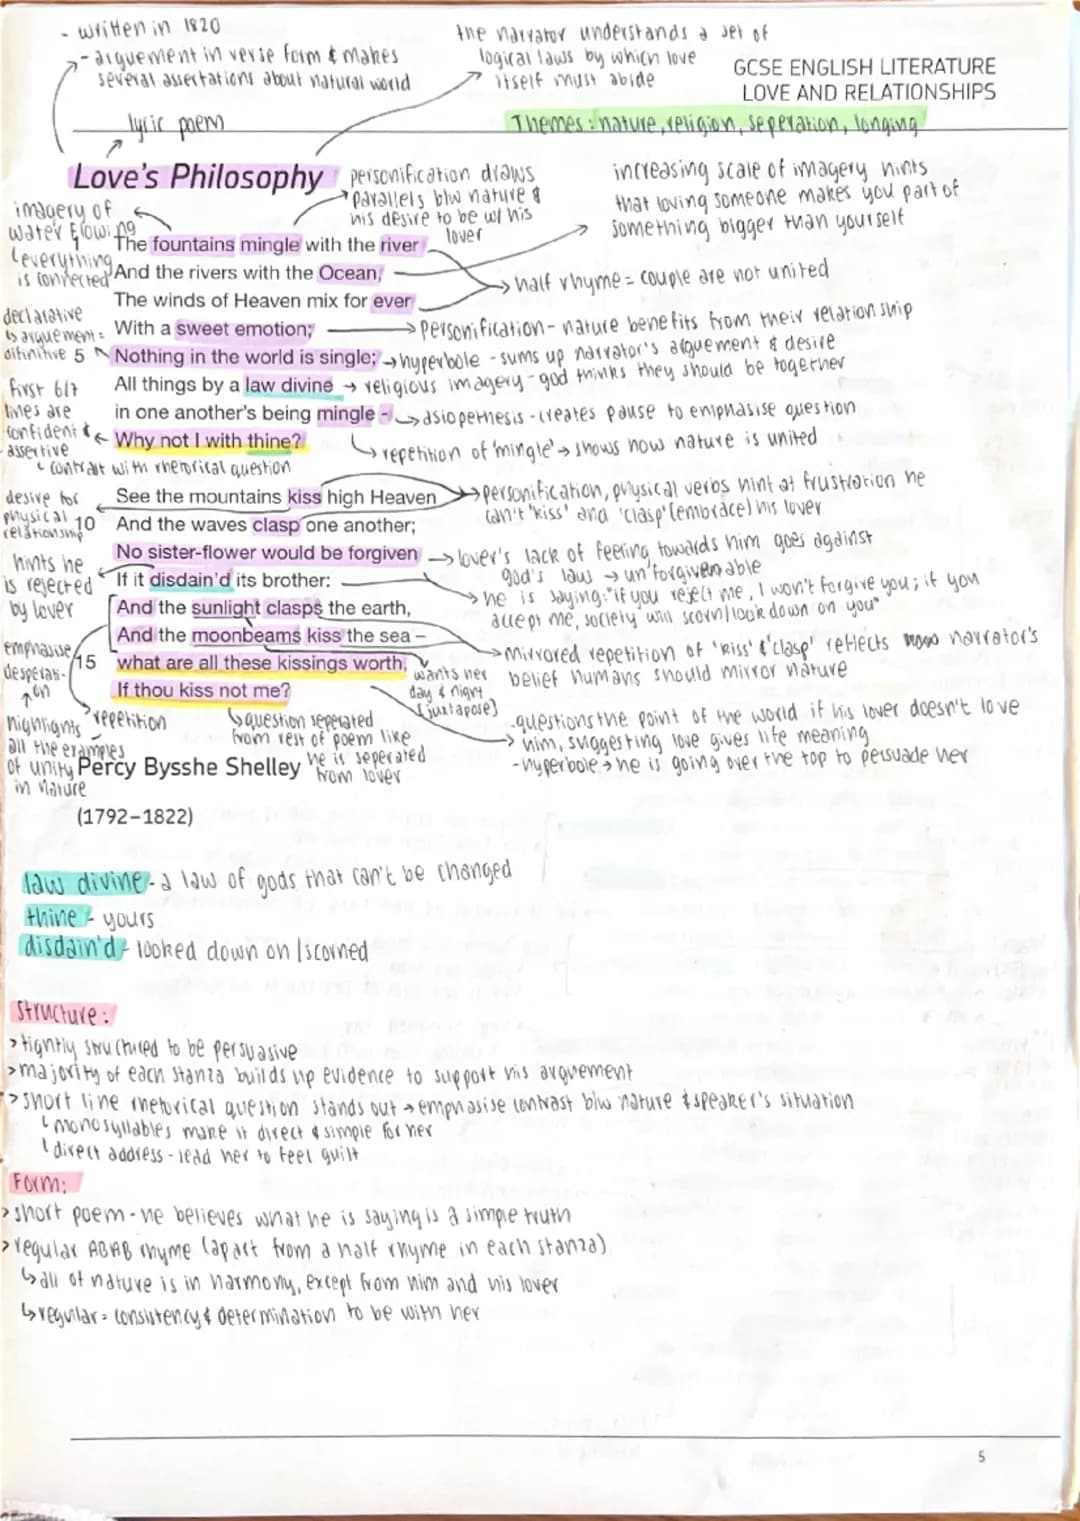 - written in 1820
- arguement in verse form & makes
several assertations about natural world
the narrator understands a set of
logical laws by which love
itself must abide
GCSE ENGLISH LITERATURE
LOVE AND RELATIONSHIPS
lyric poem
Themes: nature, religion, seperation, longing
Love's Philosophy
personification draws
parallels b/w nature &
his desire to be w/ his
lover
increasing scale of imagery hints
that loving someone makes you part of
something bigger than yourself
imagery of
water flowing
everything
is connected
The fountains mingle with the river
And the rivers with the Ocean,
The winds of Heaven mix for ever
half rhyme = couple are not united
declarative
arguement =
difinitive
With a sweet emotion;
Personification - nature benefits from their relationship
5 Nothing in the world is single;
hyperbole - sums up narrator's arguement & desire
All things by a law divine
religious imagery - god thinks they should be together
first 6/7
lines are
confident &
assertive
in one another's being mingle -
asiopethesis - creates pause to emphasise question
Why not I with thine?
repetition of 'mingle' → shows how nature is united
contrast with rhetorical question
desire for
physical
relationship
See the mountains kiss high Heaven
10 And the waves clasp one another;
personification, physical verbs hint at frustration he
can't 'kiss' and 'clasp' (embrace) his lover
hints he
is rejected
by lover
No sister-flower would be forgiven
lover's lack of feeling towards him goes against
god's law → un'forgiven'able
If it disdain'd its brother:
he is saying: "if you reject me, I won't forgive you; if you
accept me, society will scorn/look down on you"
And the sunlight clasps the earth,
And the moonbeams kiss the sea –
mirrored repetition of 'kiss' & 'clasp' reflects narrator's
belief humans should mirror nature
emphasise
desperati-
on
15 what are all these kissings worth,
If thou kiss not me?
wants her
day & night
(juxtapose)
repetition
highlights
all the examples
of unity
in nature
question seperated
from rest of poem like
he is seperated
from lover
- questions the point of the world if his lover doesn't love
him, suggesting love gives life meaning
- hyperbole → he is going over the top to persuade her
Percy Bysshe Shelley
(1792–1822)
law divine - a law of gods that can't be changed
thine - yours
disdain'd - looked down on / scorned
Structure:
> tightly structured to be persuasive
> majority of each stanza builds up evidence to support his arguement
> short line rhetorical question stands out → emphasise contrast b/w nature & speaker's situation
monosyllables make it direct & simple for her
direct address - lead her to feel guilt
Form:
> short poem - he believes what he is saying is a simple truth
> regular ABAB rhyme (apart from a half rhyme in each stanza)
↳ all of nature is in harmony, except from him and his lover
↳ regular = consistency & determination to be with her
5